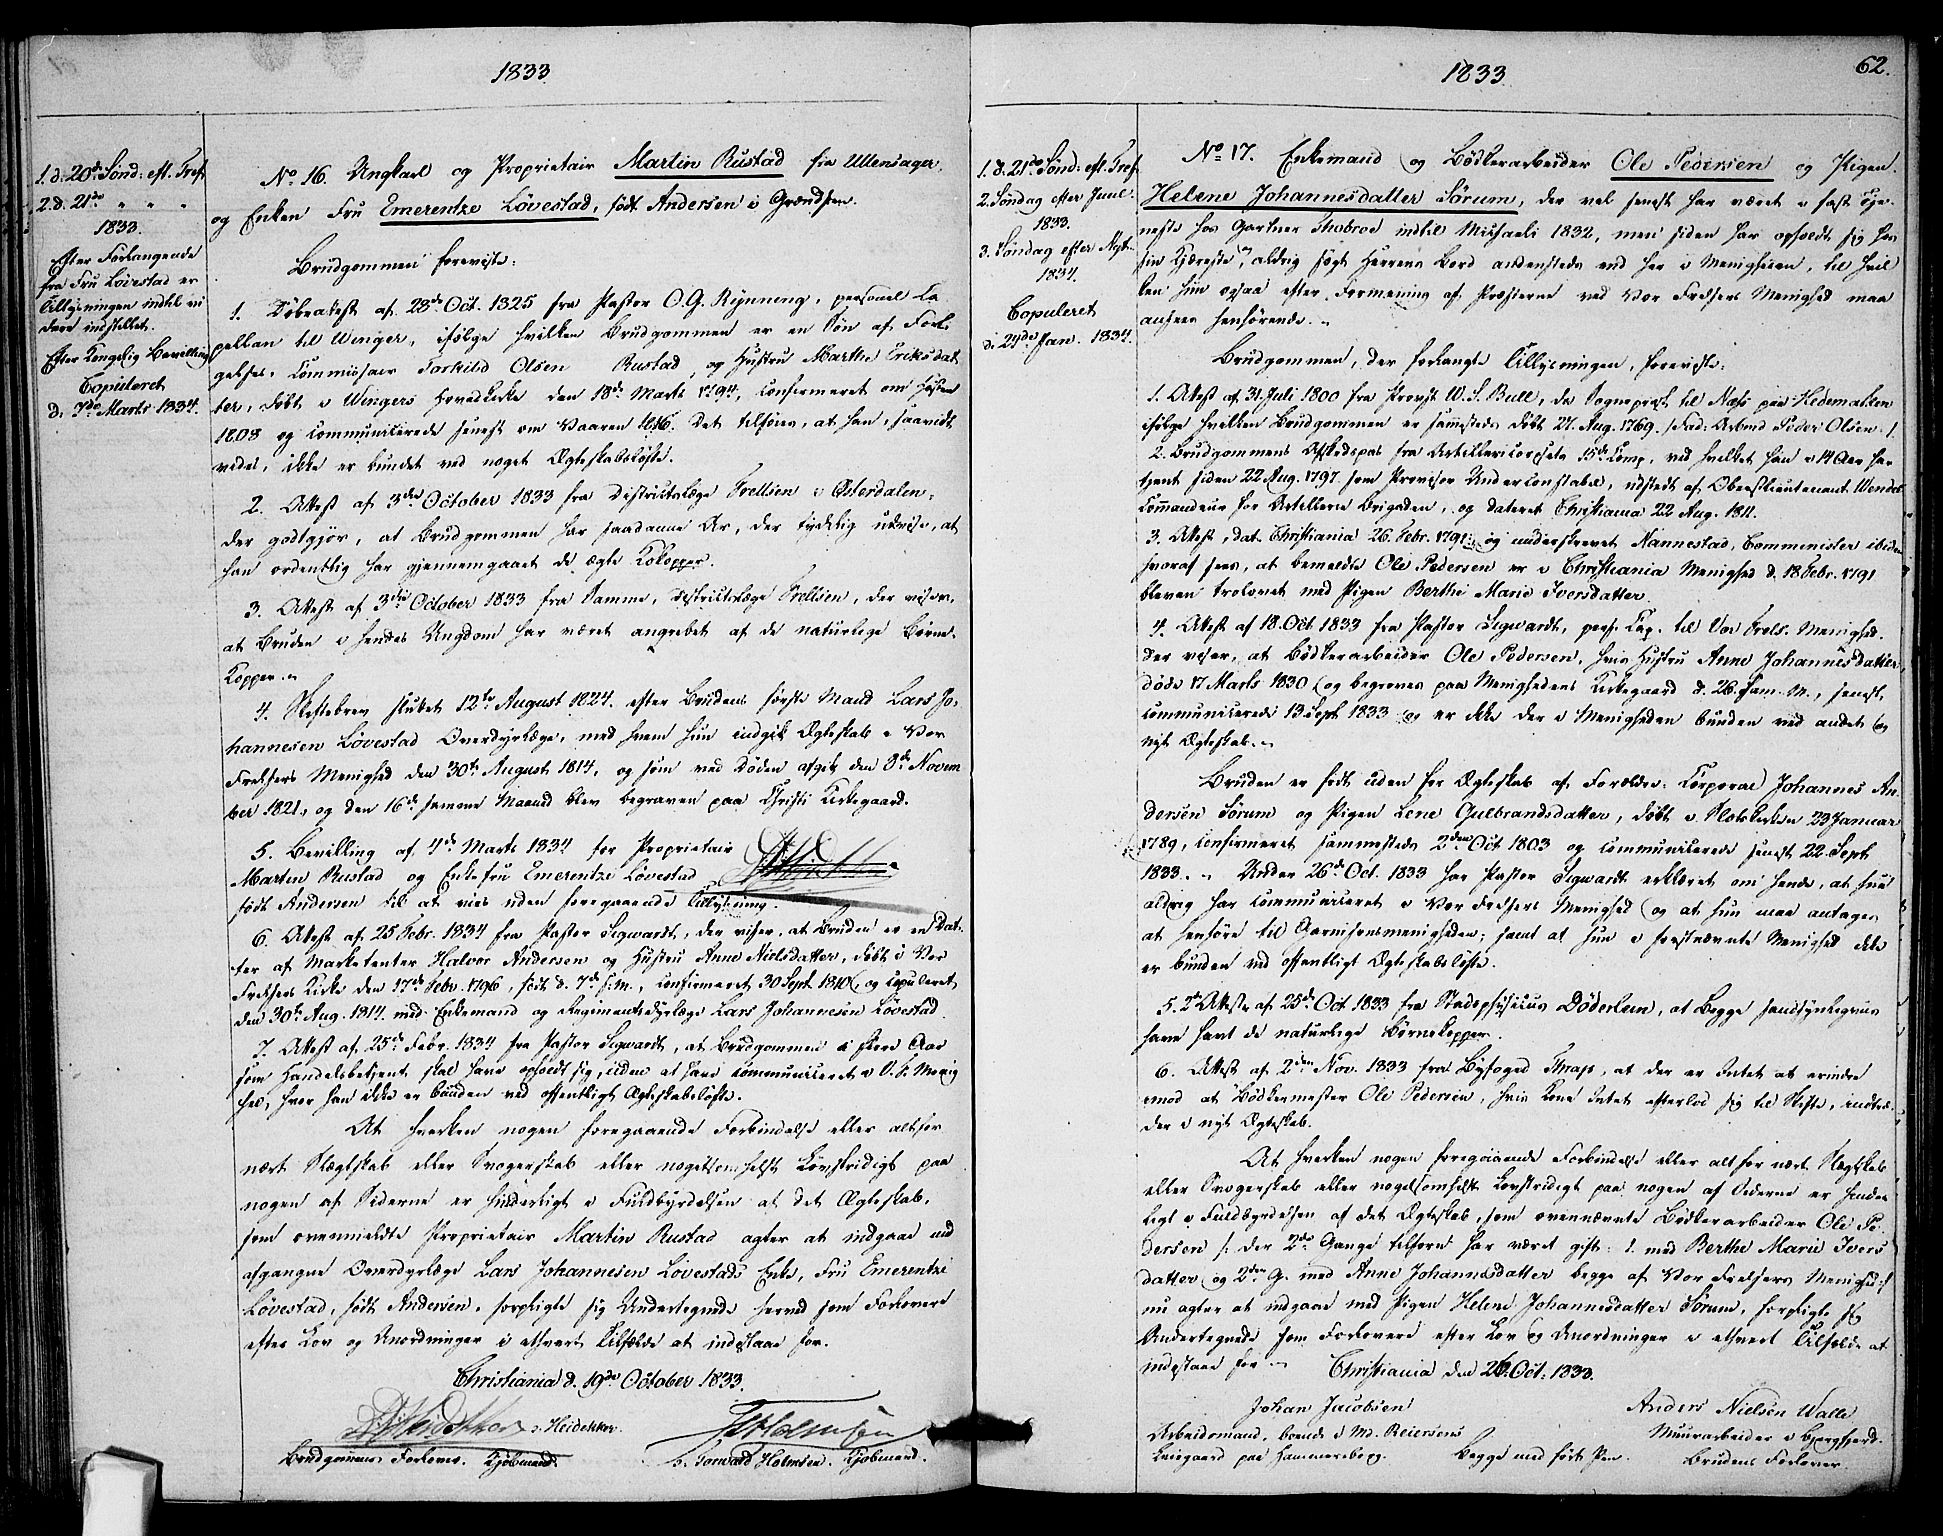 1833
1. d. 20de Sønd: eft. Tref.
2. d. 21de " " "
1833.
Efter Forlangende
fra Fru Løvestad er
Tillysningen indtil vi
dere indstillet.
Efter Kongelig Bevilling
Copuleret
d. 7de Marts 1834.
No 16. Ungkarl og Proprietair Martin Rustad fra Ullensager,
og Enken Fru Emerentze Løvestad, født Andersen i Grændsen.
Brudgommen foreviste:
1. Døbeattest af 28de Oct. 1825 fra Pastor O. G. Rynning, personel Ca
pellan til Winger, ifølge hvilken Brudgommen er en Søn af Forli
gelses-Commissair Torkild Olsen Rustad og Hustru Marthe Eriksdat
ter, døbt i Wingers Hovedkirke den 18de Marts 1794, confirmeret om Høsten
1808 og communicerede senest om Vaaren 1816. Det tilføies, at han, saavidt
vides, ikke er bundet ved noget Ægteskabsløfte.
2. Attest af 3die October 1833 fra Districtslæge Trellsen i Østerdalen,
der godtgjør, at Brudgommen har saadanne Ar, der tydelig udvise, at
han ordentlig har gjennemgaaet de ægte Kokopper.
3. Attest af 3die October 1833 fra Samme, Districtslæge Trellsen, der viser,
at Bruden i hendes Ungdom har været angrebet af de naturlige Børne-
Kopper.
4. Skiftebrev sluttet 12te August 1824 efter Brudens første Mand Lars Jo-
hannesen Løvestad Overdyrlæge, med hvem hun indgik Ægteskab i Vor
Frelsers Menighed den 30te August 1814, og som ved Døden afgik den 8de Novem
ber 1821, og den 16de samme Maaned blev begraven paa Christi Kirkegaard.
5. Bevilling af 4de Marts 1834 for Proprietair
Martin Rustad og Enkefru Emerentze Løvestad
født Andersen til at vies uden foregaaende Tillysning.
6. Attest af 25 Febr. 1834 fra Pastor Sigwardt, der viser, at Bruden er en Dat-
ter af Marketenter Halvor Andersen og Hustru Anne Nielsdatter, døbt i Vor
Frelsers Kirke den 17de Febr. 1796, født d. 7de s. m., confirmeret 30 Sept. 1810, og copuleret
den 30te Aug. 1814 med Enkemand og Regimentsdyrlæge Lars Johannesen Løvestad.
7. Attest af 25de Febr. 1834 fra Pastor Sigwardt, at Brudgommen i flere Aar
som Handelsbetjent skal have opholdt sig, uden at have communiceret i V. F. Menig
hed, hvor han ikke er bunden ved offentligt Ægteskabsløfte.
At hverken nogen foregaaende Forbindelse eller altfor
nært Slægtskab eller Svogerskab eller nogetsomhelst Lovstridigt paa
nogen af Siderne er hinderligt i Fuldbyrdelsen af det Ægteskab,
som ovenmeldte Proprietair Martin Rustad agter at indgaae med
afgangne Overdyrlæge Lars Johannesen Løvestads Enke, Fru Emerentze
Løvestad, født Andersen, forpligte sig Undertegnede herved som Forlovere
efter Lov og Anordninger i ethvert Tilfælde at indestaae for.
Christiania d. 19de October 1833.
Heidekker.
Brudgommens Forlover. Kjøbmand.
Torvald Holmsen. Kjøbmand.
1833
62.
1. d. 21de Sønd: eft. Tref.
2. Søndag efter Juul.
1833.
3. Søndag efter Nyt.
1834.
Copuleret
d. 24de Jan. 1834.
No 17. Enkemand og Bødkerarbeider Ole Pedersen og Pigen
Helene Johannesdatter Sørum, der vel senest har været i fast Tje-
neste hos Gartner Thobroe indtil Michaeli 1832, men siden har opholdt sig hos
sin Kjæreste, aldrig søgt Herrens Bord andensteds end her i Menigheden, til hvil
ken hun ogsaa efter Formening af Præsterne ved Vor Frelsers Menighed maa
ansees henhørende.
Brudgommen, der forlangte Tillysningen, foreviste:
1. Attest af 31 Juli 1800 fra Provst W. S. Bull, da Sognepræst til Næss paa Hedemarken
ifølge hvilken Brudgommen er sammesteds døbt 27. Aug. 1769. /Fad: Arbmd Peder Olsen./
2. Brudgommens Afskedspas fra Artillericorpsets 15de Comp. ved hvilket han i 14 Aar har
tjent siden 22 Aug. 1797 som Provisor Underconstabel, udstedt af Oberstlieutenant Wendel
Commandeur for Artillerie Brigaden, og dateret Christiania 22 Aug. 1811.
3. Attest, dat. Christiania 26. Febr. 1791, og underskrevet Nannestad, Comminister ibidem
hvoraf sees, at bemeldte Ole Pedersen er i Christiania Menighed d. 18 Febr. 1791
bleven trolovet med Pigen Berthe Marie Iversdatter.
4. Attest af 18. Oct. 1833 fra Pastor Sigwardt, pers. Cap. til Vor Frels. Menighed.
der viser, at Bødkerarbeider Ole Pedersen, hvis Hustru Anne Johannesdatter
døde 17 Marts 1830 og begraves paa Menighedens Kirkegaard d. 26. sam. M., senest
communicerede 13 Sept 1833 og er ikke der i Menigheden bunden ved andet og
nyt Ægteskab.
Bruden er født uden for Ægteskab af Forældre: Corporal Johannes An
dersen Sørum og Pigen Lene Gulbrandsdatter, døbt i Slotskirken 23 Januar
1789, confirmeret sammesteds 2den Oct 1803 og communicerede senest 22 Sept
1833. Under 26de Oct. 1833 har Pastor Sigwardt erklæret om hende, at hun
aldrig har communiceret i Vor Frelsers Menighed og at hun maa antages
at henhøre til Garnisonsmenigheden; samt at hun i førstnævnte Menighed ikke
er bunden ved offentligt Ægteskabsløfte.
5. 2de Atteste af 25de Oct 1833 fra Stadsphysicus Døderlein, at Begge sandsynligviis
have havt de naturlige Børnekopper.
6. Attest af 2den Nov. 1833 fra Byfoged Thrap, at der er Intet at erindre
imod at Bødkermester Ole Pedersen, hvis Kone Intet efterlod sig til Skifte, indtræ-
der i nyt Ægteskab.
At hverken nogen foregaaende Forbindelse eller altfor nært Slægtskab
eller Svogerskab eller nogetsomhelst Lovstridigt paa nogen af Siderne er hinder
ligt i Fuldbyrdelsen af det Ægteskab, som ovennævnte Bødkerarbeider Ole Pe-
dersen /: der 2de Gange tilforn har været gift: 1. med Berthe Marie Ivers
datter og 2den G. med Anne Johannesdatter begge af Vor Frelsers Menighed:/
nu agter at indgaae med Pigen Helene Johannesdatter Sørum, forpligte sig
Undertegnede som Forlovere efter Lov og Anordninger i ethvert Tilfælde at
indestaae for. Christiania den 26. Oct: 1833.
Johan Jacobsen
Arbeidsmand, boende i Md. Reiersens
Leiegaard paa Hammersborg.
Begge med ført Pen.
Anders Nielsen Walle
Muurarbeider i Bjergfjerd.
Brudens Forlover.